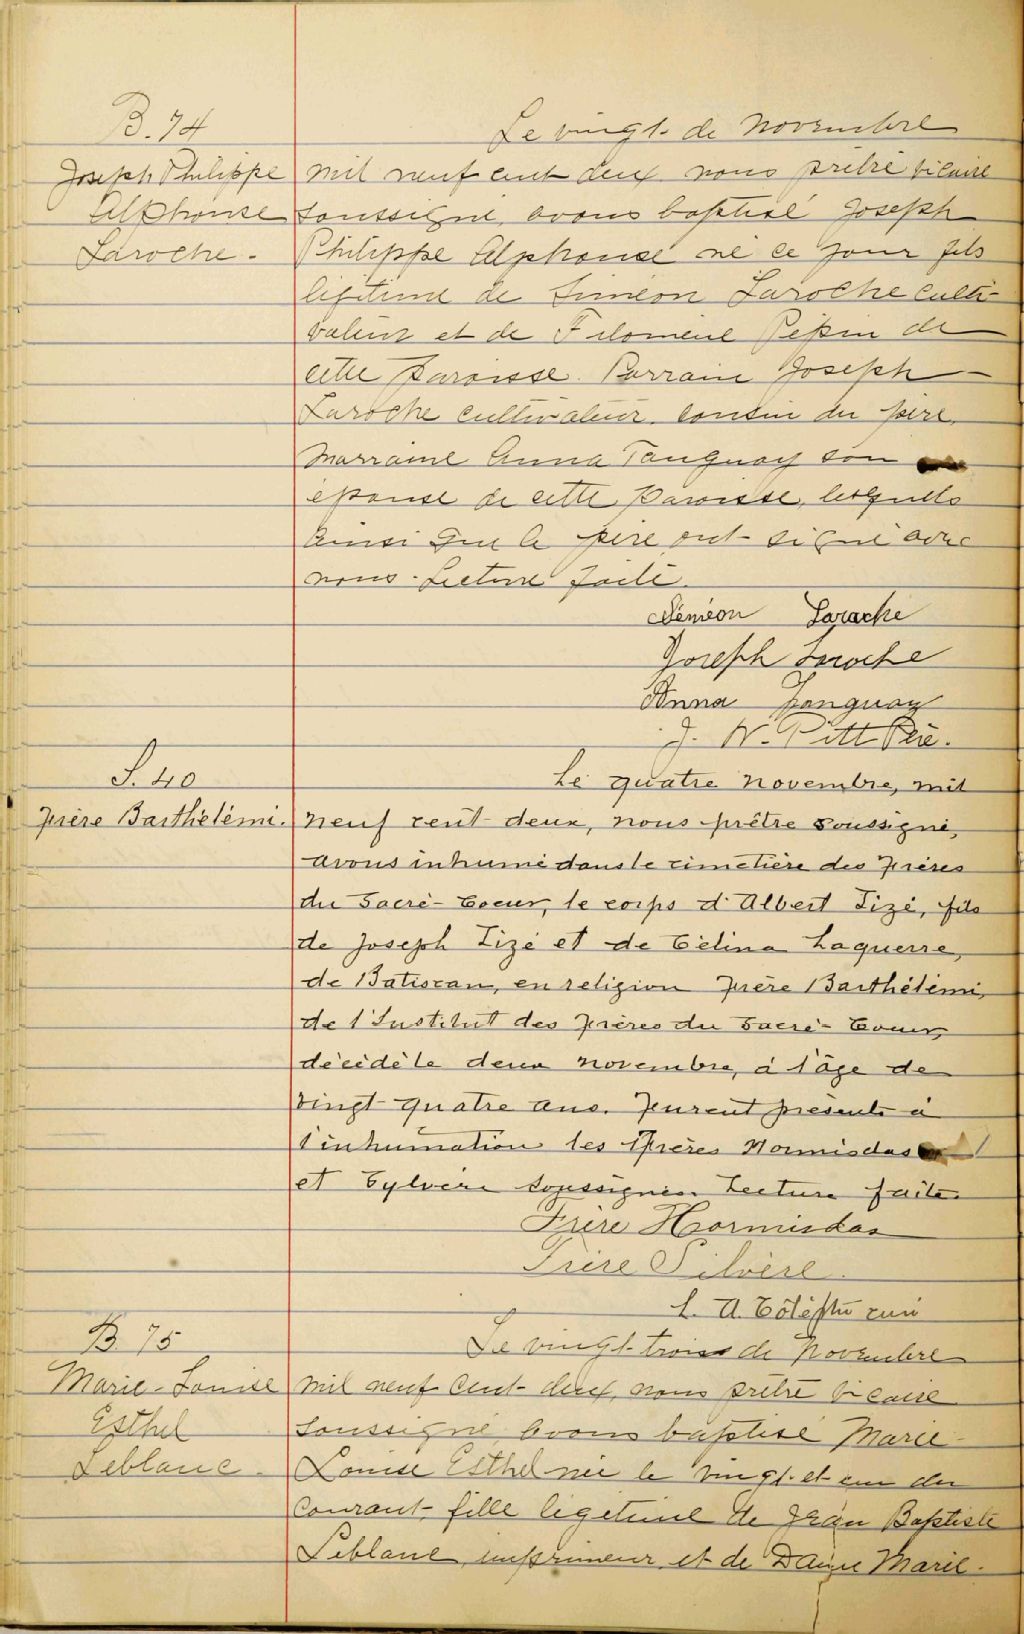 B. 74
Joseph Philippe
Alphonse
Laroche -
Le vingt de novembre
mil neuf cent deux nous prêtre vicaire
soussigné, avons baptisé Joseph
Philippe Alphonse né ce jour fils
légitime de Siméon Laroche culti-
vateur et de Filomène Pépin de
cette paroisse. Parrain Joseph -
Laroche cultivateur, cousin du père,
marraine Anna Tanguay son
épouse de cette paroisse, lesquels
ainsi que le père ont signé avec
nous. Lecture faite.
Séméon Laroche
Joseph Laroche
Anna Tanguay
J. W. Pitt Ptre.
S. 40
Frère Barthélémi.
Le quatre novembre, mil
neuf cent deux, nous prêtre soussigné,
avons inhumé dans le cimetière des Frères
du Sacré-Coeur, le corps d'Albert Tizé, fils
de Joseph Tizé et de Célina Laguerre,
de Batiscan, en religion Frère Barthélémi,
de l'Institut des Frères du Sacré-Coeur,
décédé le deux novembre, à l'âge de
vingt quatre ans. Furent présents à
l'inhumation les Frères Hormisdas
et Sylvère soussignés. Lecture faite.
Frère Hormisdas
Frère Silvère.
L. A. Côté Ptre curé
B. 75
Marie-Louise
Esthel
Leblanc -
Le vingt-trois de novembre
mil neuf cent-deux, nous prêtre vicaire
soussigné, avons baptisé Marie-
Louise Esthel née le vingt-et-un du
courant, fille légitime de Jean Baptiste
Leblanc, imprimeur, et de Dame Marie-